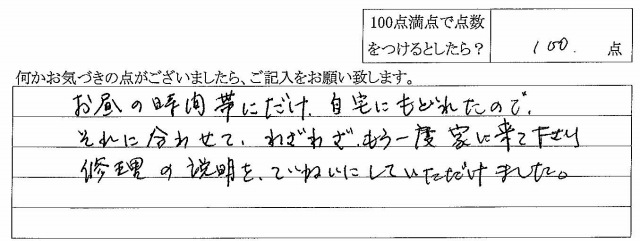 100点満点で点数
をつけるとしたら？
100.
点
何かお気づきの点がございましたら、ご記入をお願い致します。
お昼の時間帯にだけ、自宅にもどれたので、
それに合わせて、わざわざ、もう一度家に来て下さり
修理の説明を、ていねいにしていただけました。